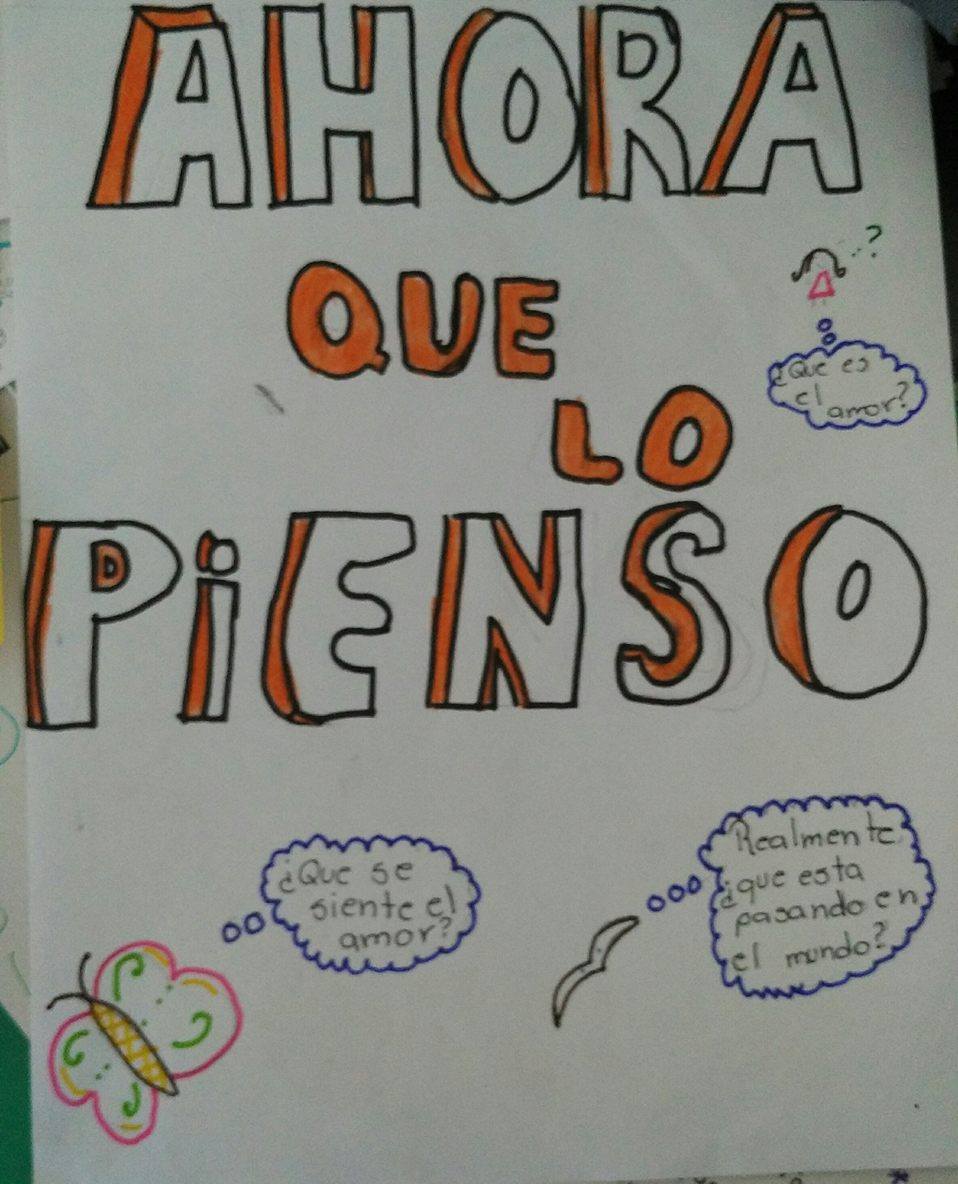 AHORA
QUE
LO
PiENSO
?
¿Que es
el
amor?
¿Que se
siente el
amor?
Realmente
¿que esta
pasando en
el mundo?